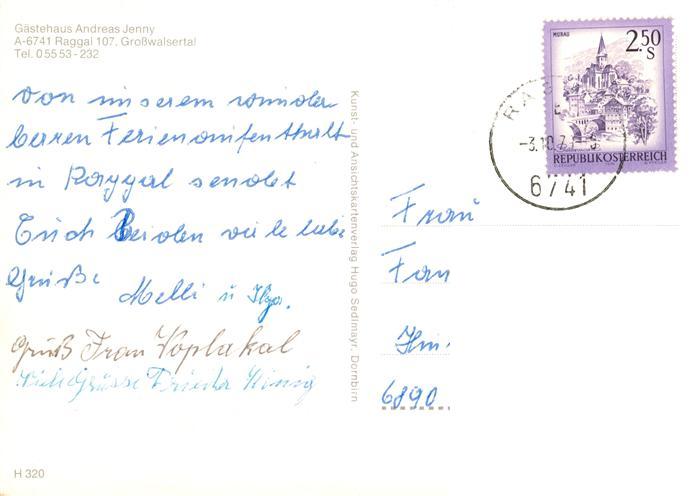 Gästehaus Andreas Jenny
A-6741 Raggal 107, Großwalsertal
Tel. 0 55 53 - 232
von unserem wunder
baren Ferienaufenthalt
in Raggal sendet
Euch beiden viele liebe
Grüße
Melli u Ilga.
Gruß Frau Voplakal
Viele Grüsse Frieda König
H 320
Kunst- und Ansichtskartenverlag Hugo Sedlmayr, Dornbirn
MURAU
2.50
S
REPUBLIK ÖSTERREICH
-3.10.7
6741
Frau
Fam
6890